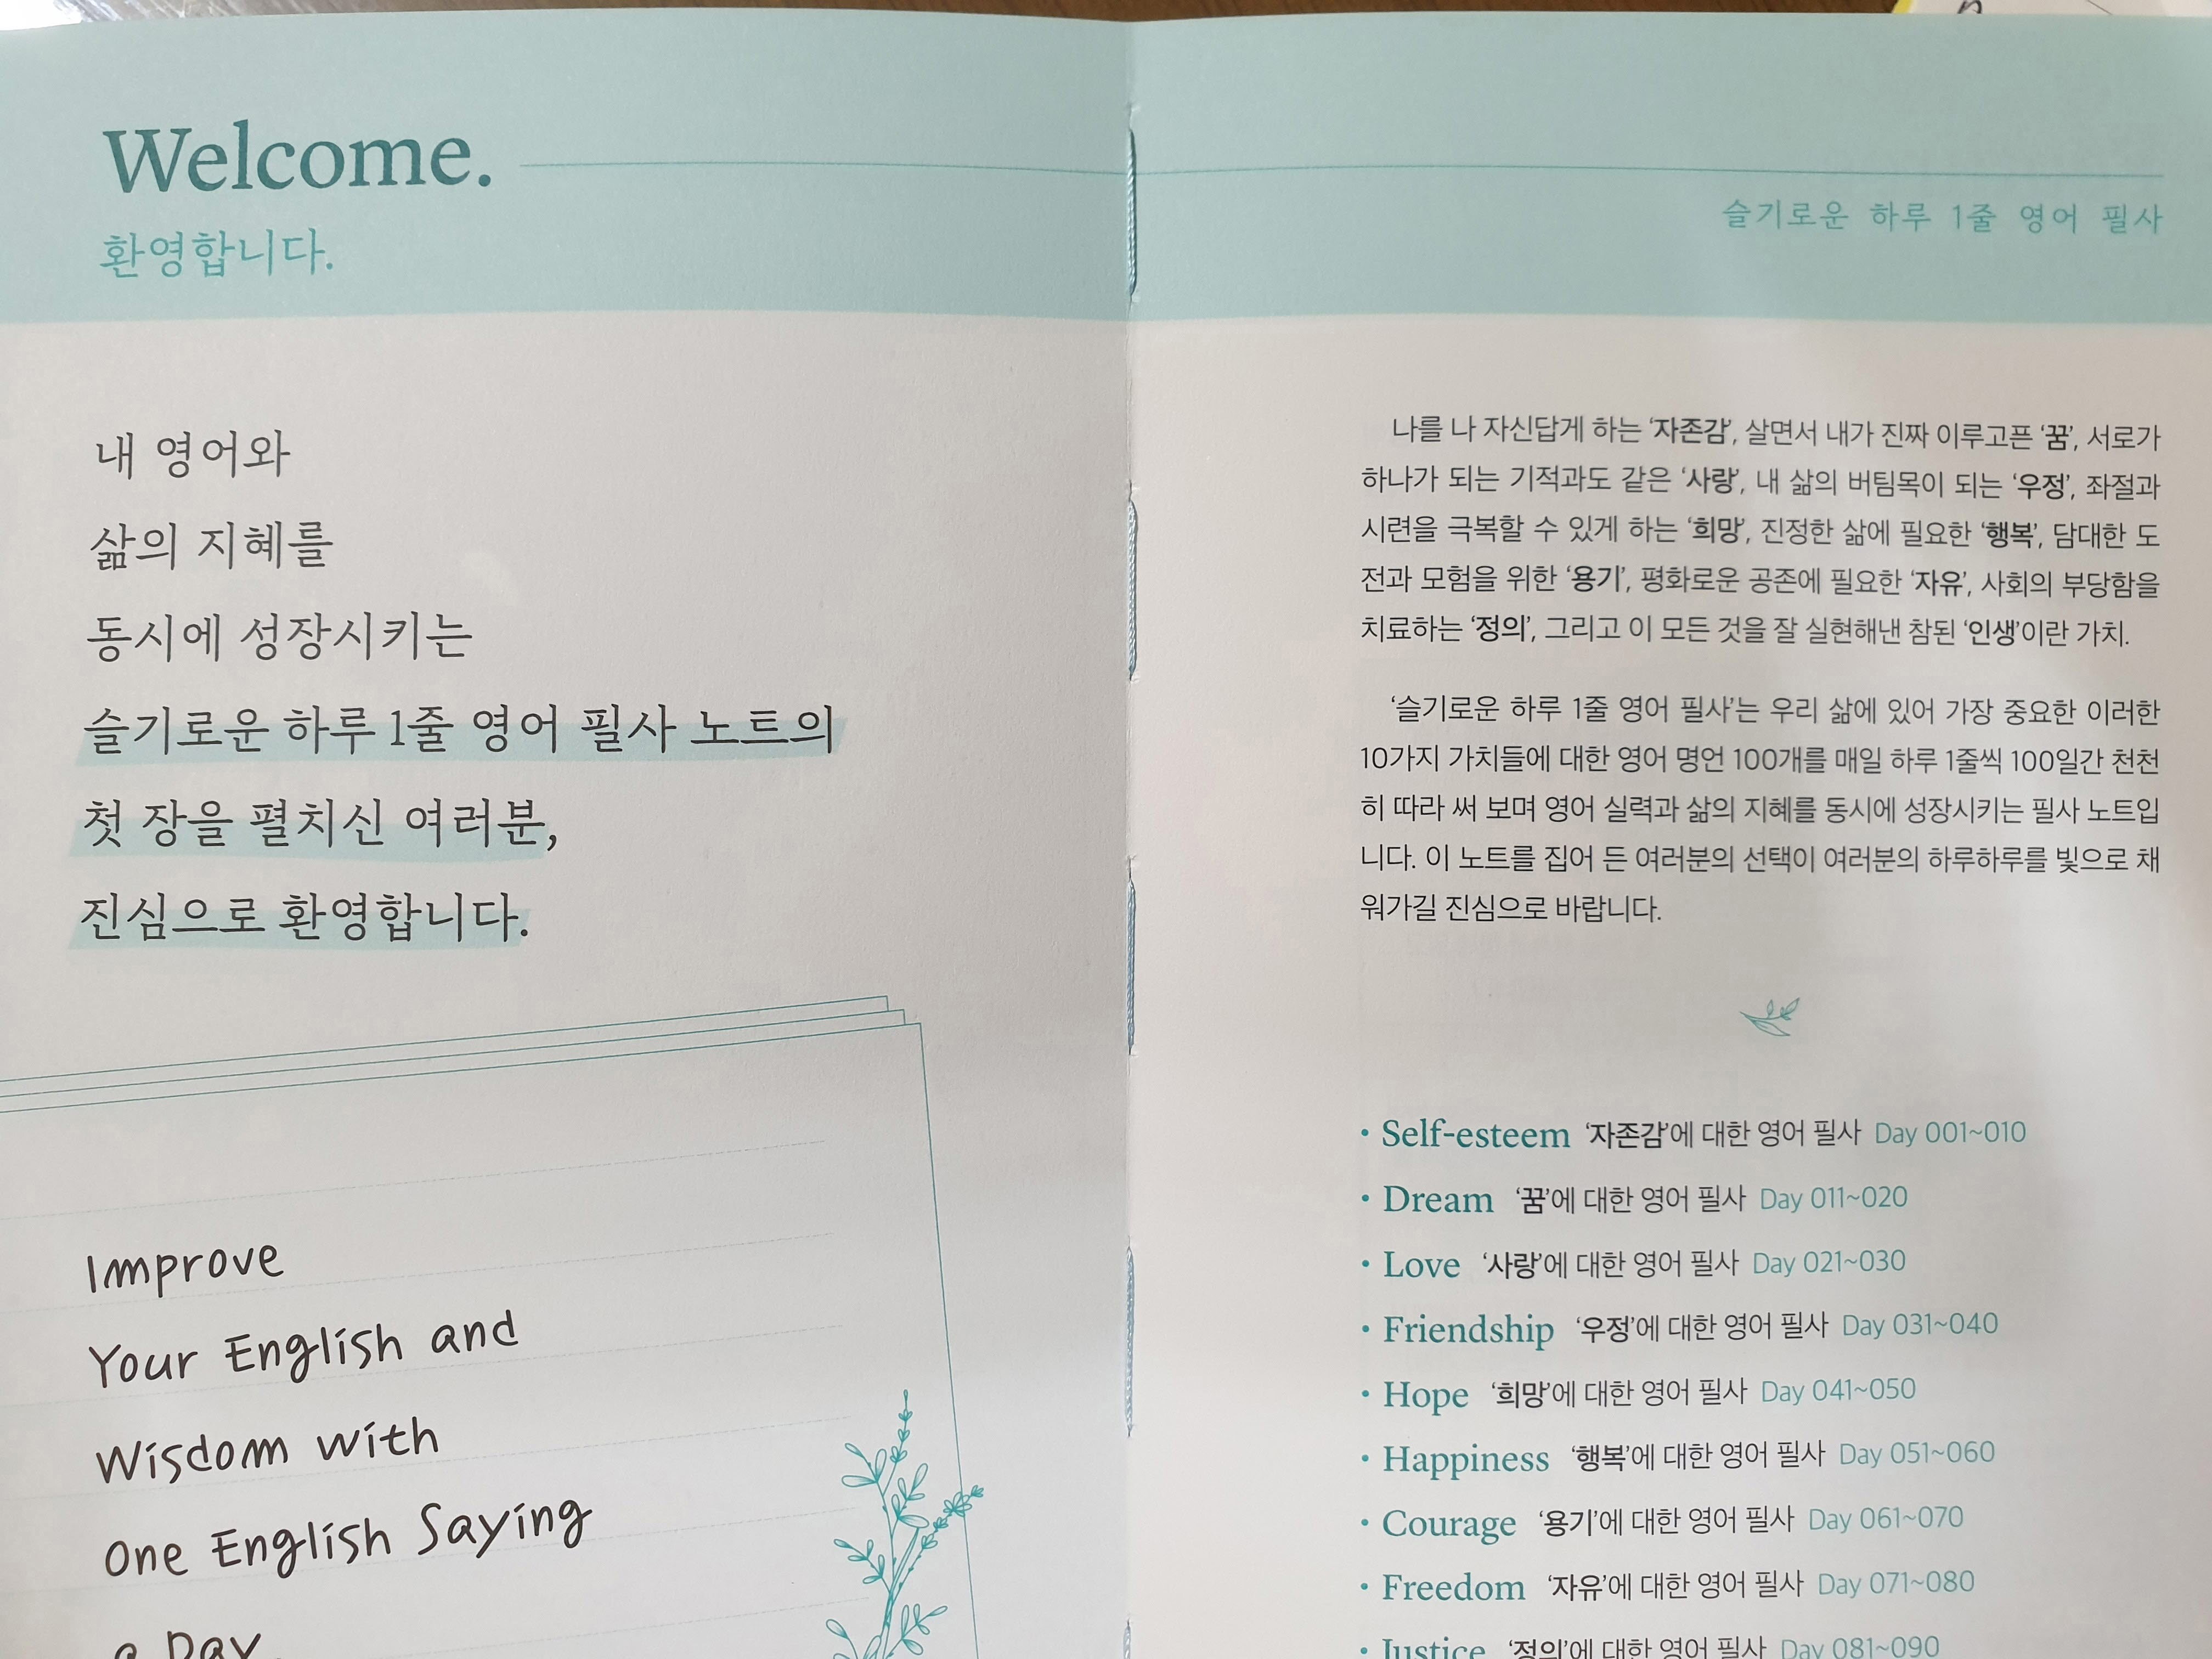 Welcome.
환영합니다.
내 영어와
삶의 지혜를
동시에 성장시키는
슬기로운 하루 1줄 영어 필사 노트의
첫 장을 펼치신 여러분,
진심으로 환영합니다.
Improve
Your English and
Wisdom with
One English Saying
a Day.
슬기로운 하루 1줄 영어 필사
나를 나 자신답게 하는 ‘자존감’, 살면서 내가 진짜 이루고픈 ‘꿈’, 서로가
하나가 되는 기적과도 같은 ‘사랑’, 내 삶의 버팀목이 되는 ‘우정’, 좌절과
시련을 극복할 수 있게 하는 ‘희망’, 진정한 삶에 필요한 ‘행복’, 담대한 도
전과 모험을 위한 ‘용기’, 평화로운 공존에 필요한 ‘자유’, 사회의 부당함을
치료하는 ‘정의’, 그리고 이 모든 것을 잘 실현해낸 참된 ‘인생’이란 가치.
‘슬기로운 하루 1줄 영어 필사’는 우리 삶에 있어 가장 중요한 이러한
10가지 가치들에 대한 영어 명언 100개를 매일 하루 1줄씩 100일간 천천
히 따라 써 보며 영어 실력과 삶의 지혜를 동시에 성장시키는 필사 노트입
니다. 이 노트를 집어 든 여러분의 선택이 여러분의 하루하루를 빛으로 채
워가길 진심으로 바랍니다.
• Self-esteem ‘자존감’에 대한 영어 필사 Day 001~010
• Dream ‘꿈’에 대한 영어 필사 Day 011~020
• Love ‘사랑’에 대한 영어 필사 Day 021~030
• Friendship ‘우정’에 대한 영어 필사 Day 031~040
• Hope ‘희망’에 대한 영어 필사 Day 041~050
• Happiness ‘행복’에 대한 영어 필사 Day 051~060
• Courage ‘용기’에 대한 영어 필사 Day 061~070
• Freedom ‘자유’에 대한 영어 필사 Day 071~080
• Justice ‘정의’에 대한 영어 필사 Day 081~090